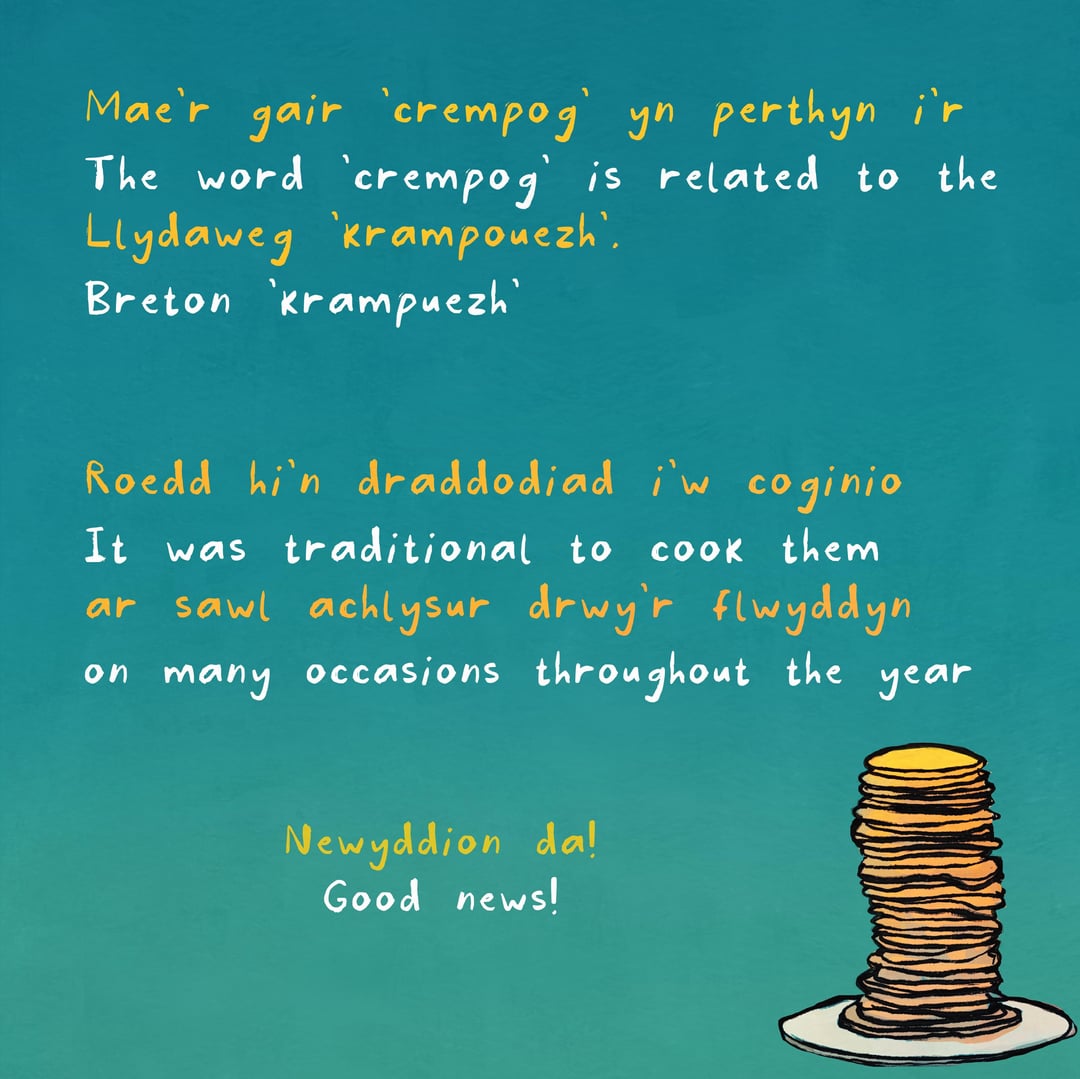 Mae'r gair 'crempog' yn perthyn i'r
The word 'crempog' is related to the
Llydaweg 'krampouezh'.
Breton 'krampuezh'
Roedd hi'n draddodiad i'w coginio
It was traditional to cook them
ar sawl achlysur drwy'r flwyddyn
on many occasions throughout the year
Newyddion da!
Good news!